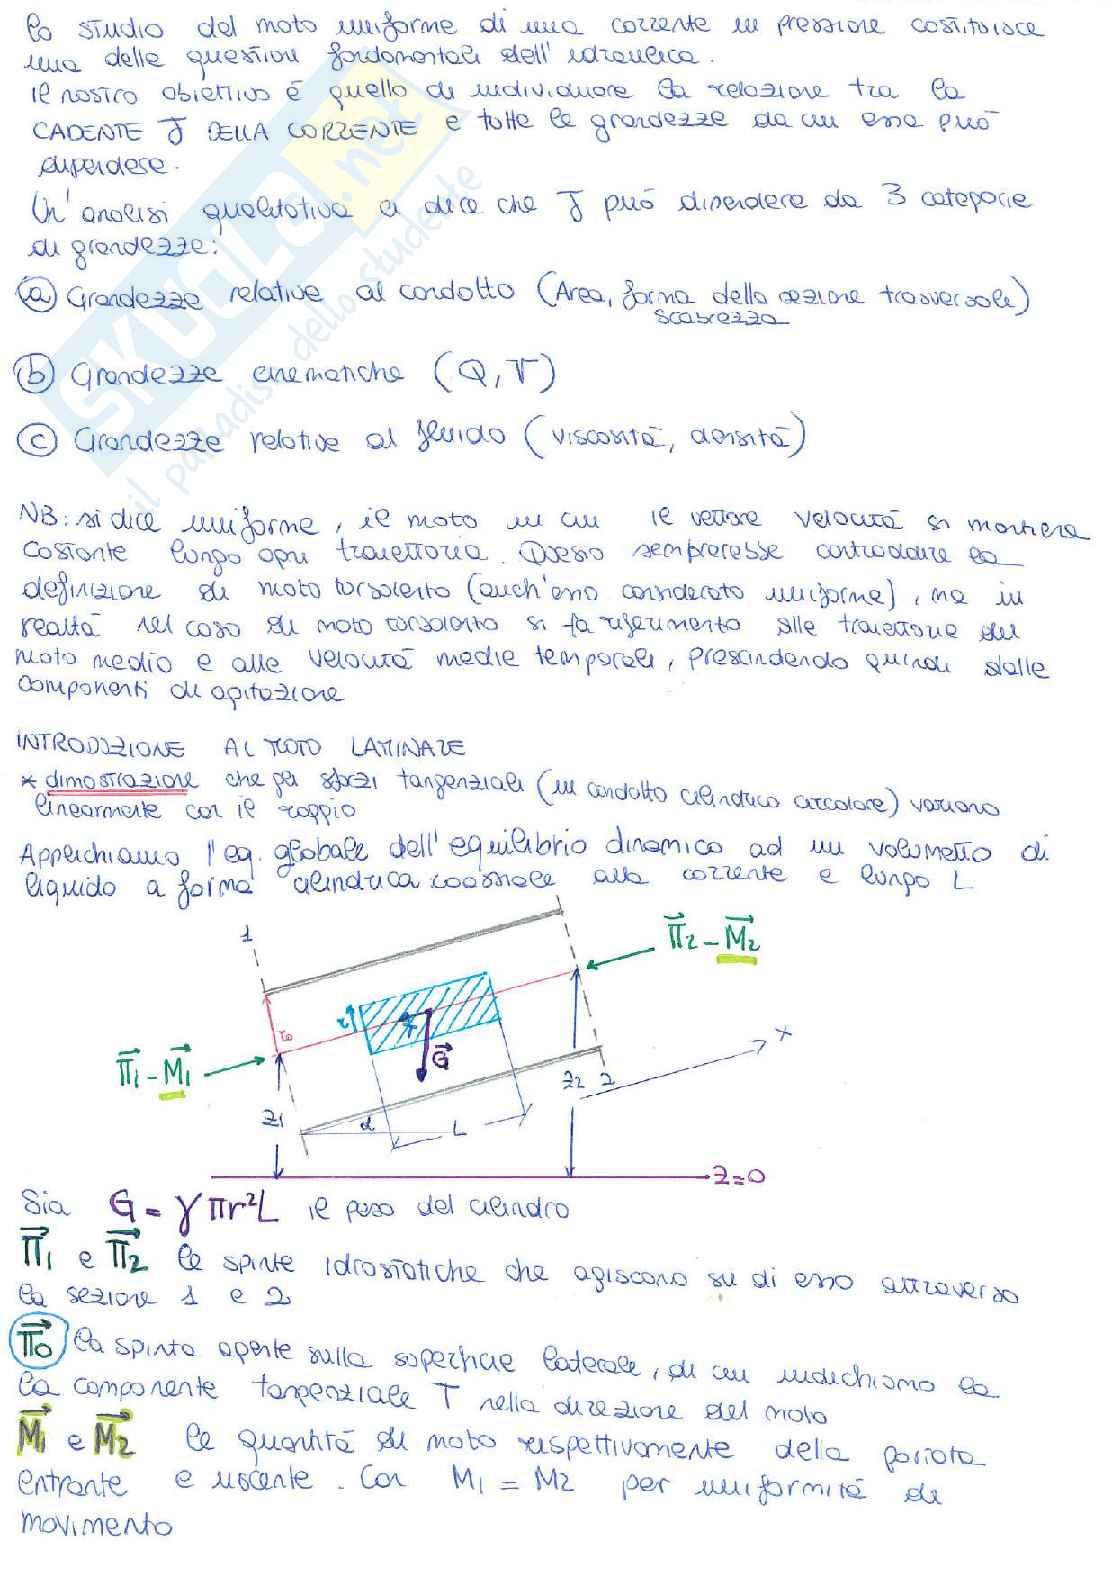 Lo studio del moto uniforme di una corrente in pressione costituisce
una delle questioni fondamentali dell'idraulica.
il nostro obiettivo è quello di individuare la relazione tra la
CADENTE J DELLA CORRENTE e tutte le grandezze da cui essa può
dipendere.
Un'analisi qualitativa ci dice che J può dipendere da 3 categorie
di grandezze:
(a) Grandezze relative al condotto (Area, forma della sezione trasversale)
scabrezza
(b) Grandezze cinematiche (Q, V)
(c) Grandezze relative al fluido (viscosità, densità)
NB: si dice uniforme, il moto in cui il vettore velocità si mantiene
costante lungo ogni traiettoria. Questo sembrerebbe contraddire la
definizione di moto turbolento (anch'esso considerato uniforme), ma in
realtà nel caso di moto turbolento si fa riferimento alle traiettorie del
moto medio e alle velocità medie temporali, prescindendo quindi dalle
componenti di agitazione
INTRODUZIONE AL MOTO LAMINARE
* dimostrazione che gli sforzi tangenziali (in condotto cilindrico circolare) variano
linearmente con il raggio
Applichiamo l'eq. globale dell'equilibrio dinamico ad un volumetto di
liquido a forma cilindrica coassiale alla corrente e lungo L
1
Π2 - M2
r0
r
T
G
Π1 - M1
x
z1
z2 2
α
L
z=0
Sia G = γπr²L il peso del cilindro
Π1 e Π2 le spinte idrostatiche che agiscono su di esso attraverso
la sezione 1 e 2
Π0 la spinta agente sulla superficie laterale, di cui indichiamo la
la componente tangenziale T nella direzione del moto
M1 e M2 le quantità di moto rispettivamente della portata
entrante e uscente. Con M1 = M2 per uniformità di
movimento
SKUOLA.net
il paradiso dello studente